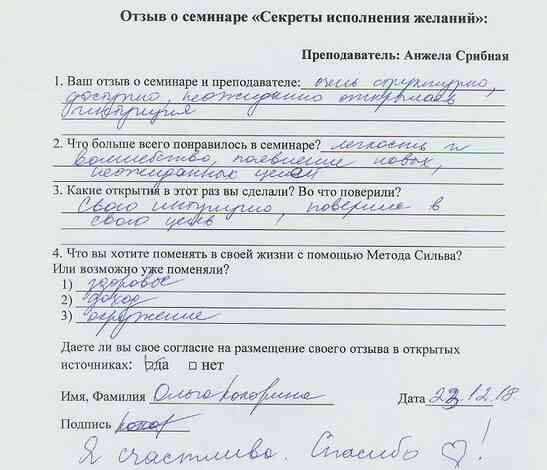 Отзыв о семинаре «Секреты исполнения желаний»:
Преподаватель: Анжела Срибная
1. Ваш отзыв о семинаре и преподавателе: очень структурно,
доступно, неожиданно открылась
интуиция
2. Что больше всего понравилось в семинаре? легкость и
волшебство, появление новых,
неожиданных целей
3. Какие открытия в этот раз вы сделали? Во что поверили?
Свою интуицию, поверила в
свою цель!
4. Что вы хотите поменять в своей жизни с помощью Метода Сильва?
Или возможно уже поменяли?
1) здоровье
2) доход
3) окружение
Даете ли вы свое согласие на размещение своего отзыва в открытых
источниках: да нет
Имя, Фамилия Ольга Кокорина Дата 23.12.18
Подпись
Я счастлива. Спасибо ♡!